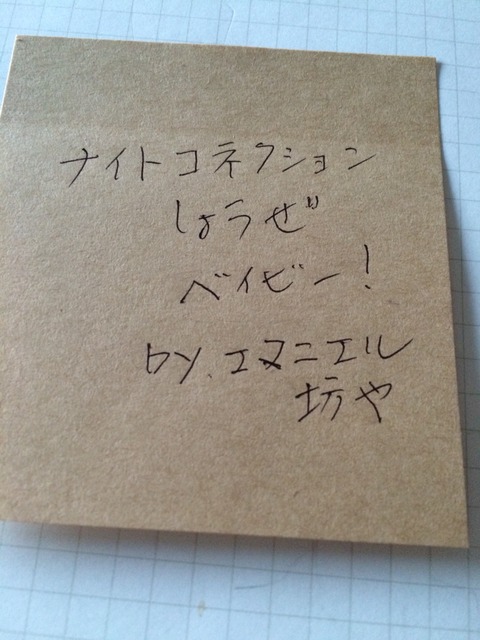 ナイトコネクション
しようぜ
ベイビー!
by.エヌニエル
坊や